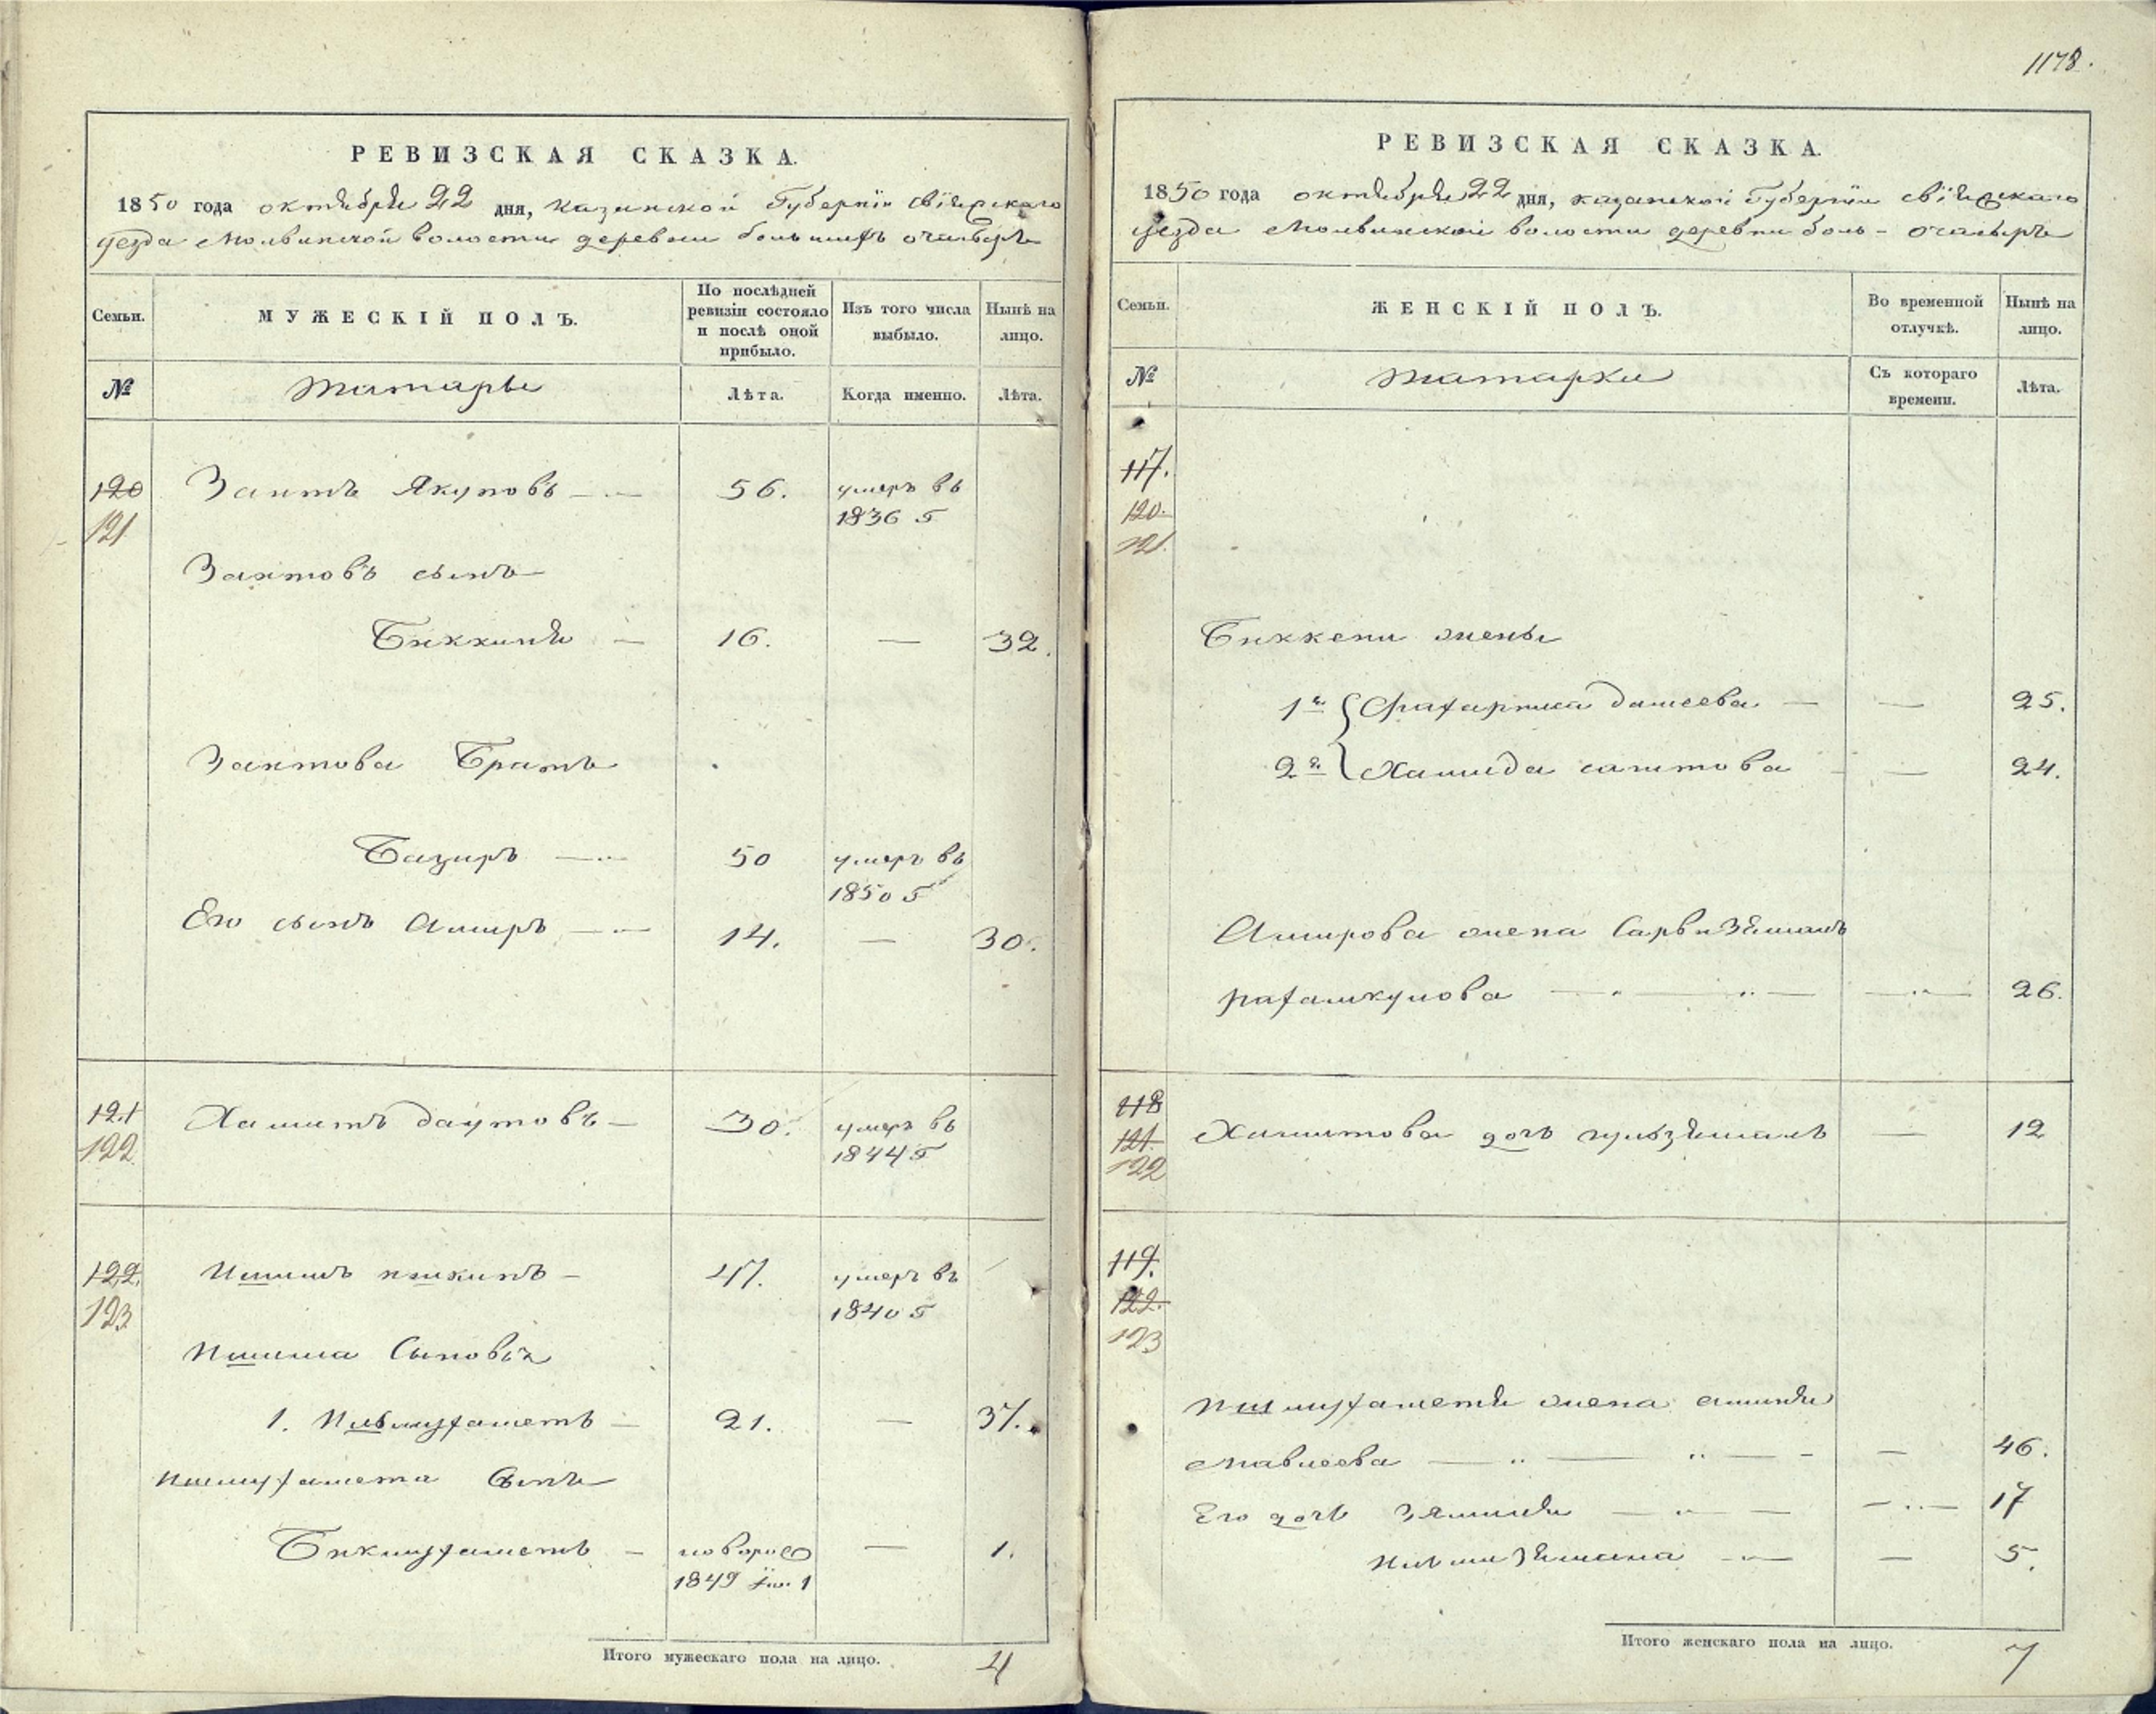 РЕВИЗСКАЯ СКАЗКА.
1850 года октября 22 дня, казанской Губернiи свiяжскаго
уезда Молвинской волости деревни большихъ очасыръ
Семьи.
МУЖЕСКІЙ ПОЛЪ.
По послѣдней ревизіи состояло и послѣ оной прибыло.
Изъ того числа выбыло.
Нынѣ на лицо.
№
татары
Лѣта.
Когда именно.
Лѣта.
120 Заитъ Якуповъ 56. умеръ въ
121 1836 г
Заитовъ сынъ
Биккиня 16. — 32.
Заитова Братъ
Базиръ 50 умеръ въ
1850 г
Его сынъ Амиръ 14. — 30.
121 Хамитъ даутовъ 30. умеръ въ
122 1844 г
122. Ишимъ 47. умеръ въ
123 1840 г
Ишима Сыновья
1. Ишмухаметъ 21. — 37.
Ишмухамета Сынъ
Бикмухаметъ — новорож — 1.
1849 1
Итого мужескаго пола на лицо. 4
1178.
РЕВИЗСКАЯ СКАЗКА.
1850 года октября 22 дня, казанской Губернiи свiяжскаго
уезда Молвинской волости деревни боль- очасыръ
Семьи.
ЖЕНСКІЙ ПОЛЪ.
Во временной отлучкѣ.
Нынѣ на лицо.
№
татарки
Съ котораго времени.
Лѣта.
117.
120.
121.
Биккени жены
1я Фахарниса — — 25.
2я Хамида саитова — 24.
Амирова жена Сарвизямалъ
рахамкулова — 26.
118
121. Хамитова дочь гульзямалъ — 12
122
119.
122.
123
Ишмухаметя жена аминя
Мавлеева — 46.
Его дочь Зямиля — 17
5.
Итого женскаго пола на лицо. 7